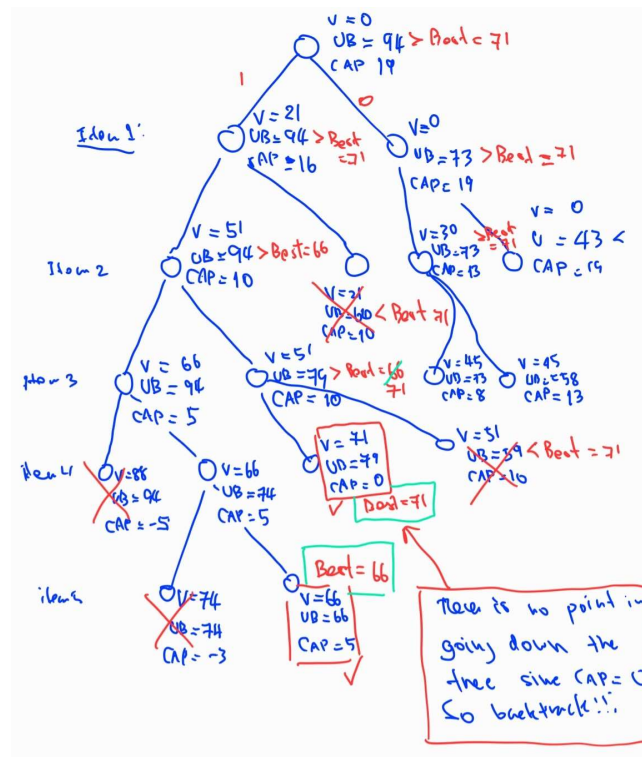 V = 0
UB = 94 > Best = 71
CAP 19
1
0
Item 1:
V = 21
UB = 94 > Best = 71
CAP = 16
V=0
UB = 73 > Best = 71
CAP = 19
Item 2
V = 51
UB = 94 > Best = 66
CAP = 10
V = 21
< Best 71
CAP = 10
V = 30
UB = 73
> Best = 71
CAP = 13
V = 0
U = 43 <
CAP = 19
Item 3
V = 66
UB = 94
CAP = 5
V = 51
UB = 79 > Best = 66
71
CAP = 10
V = 45
UB = 73
CAP = 8
V = 45
UB = 58
CAP = 13
item 4
V = 88
UB = 94
CAP = -5
V = 66
UB = 74
CAP = 5
V = 71
UB = 79
CAP = 0
Best = 71
V = 51
UB = 59 < Best = 71
CAP = 10
item 5
V = 74
UB = 74
CAP = -3
Best = 66
V = 66
UB = 66
CAP = 5
There is no point in
going down the
tree sine CAP = 0
So backtrack!!!